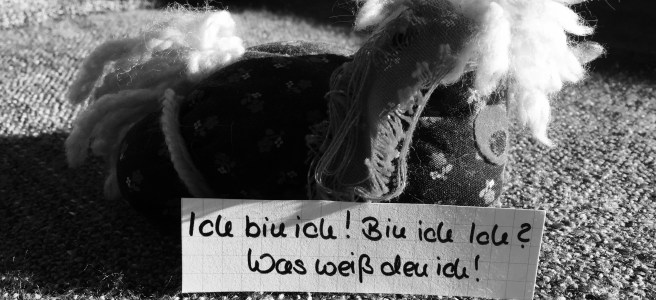 Ich bin ich! Bin ich Ich?
Was weiß den ich!